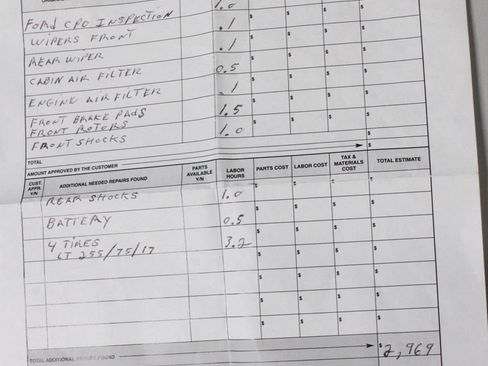 FORD CPO INSPECTION 1.0
WIPERS FRONT .1
REAR WIPER .1
CABIN AIR FILTER 0.5
ENGINE AIR FILTER .1
FRONT BRAKE PADS 1.5
FRONT ROTORS
FRONT SHOCKS 1.0
TOTAL $
AMOUNT APPROVED BY THE CUSTOMER $
CUST. APPR. Y/N ADDITIONAL NEEDED REPAIRS FOUND PARTS AVAILABLE Y/N LABOR HOURS PARTS COST LABOR COST TAX & MATERIALS COST TOTAL ESTIMATE
REAR SHOCKS 1.0
BATTERY 0.5
4 TIRES 3.2
LT 255/75/17
TOTAL ADDITIONAL REPAIRS FOUND $2,969